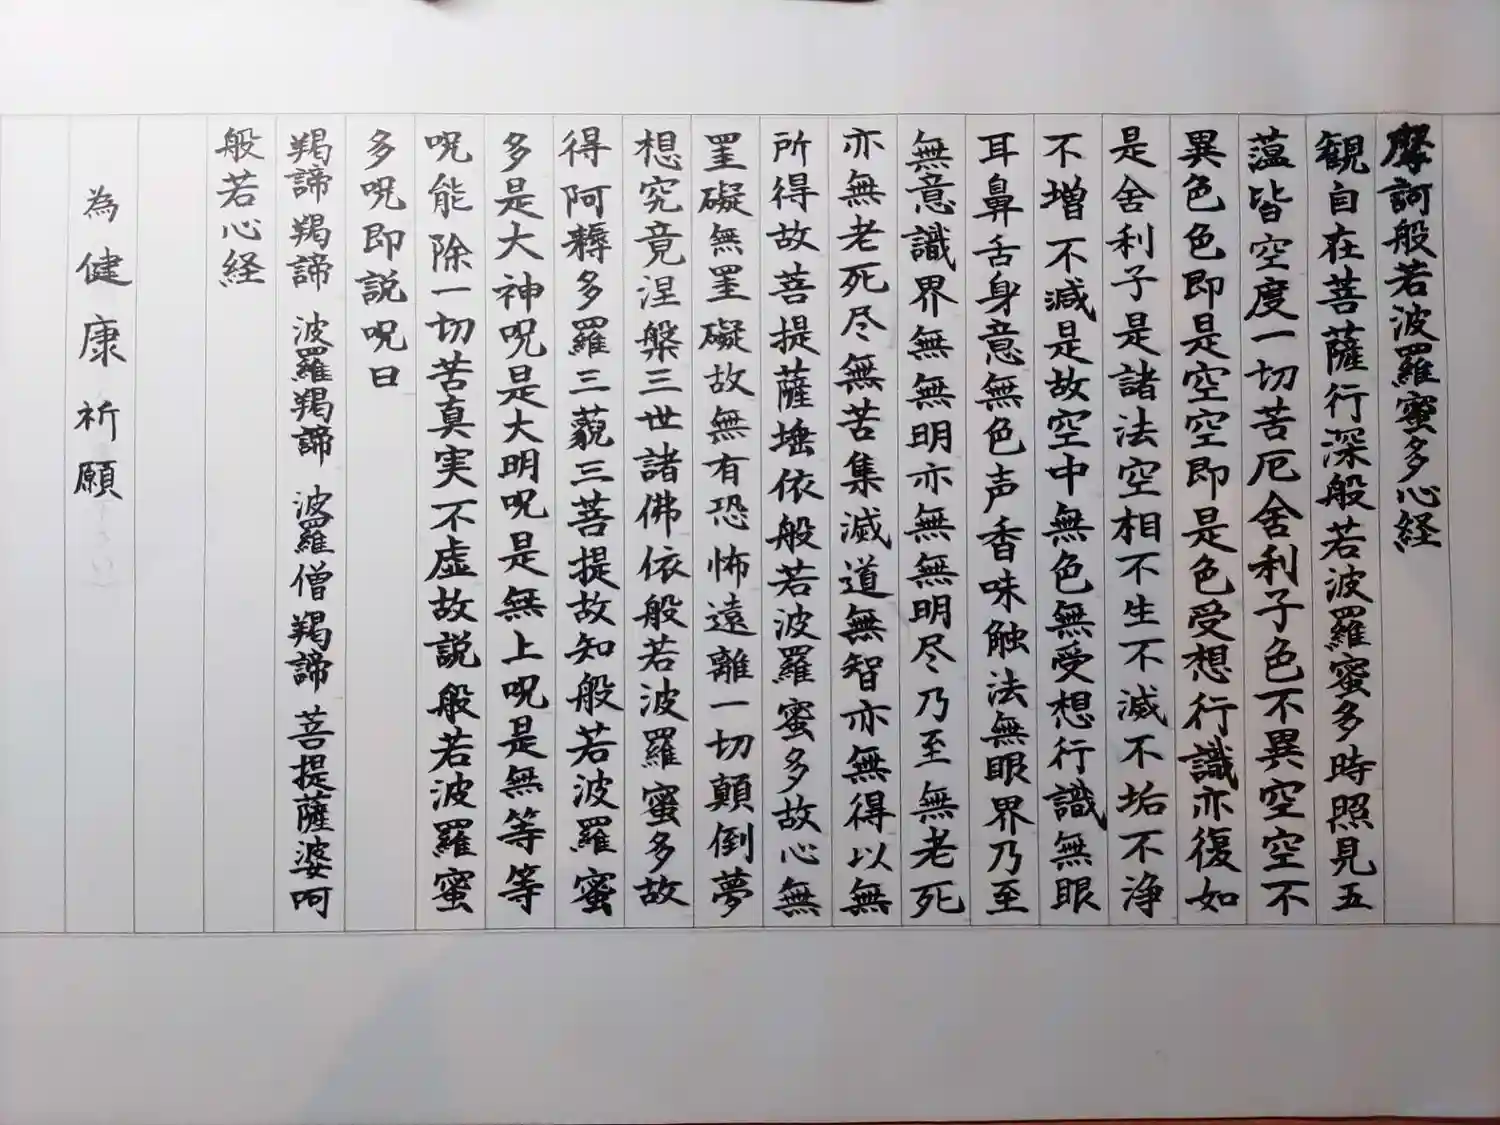 摩訶般若波羅蜜多心経
観自在菩薩行深般若波羅蜜多時照見五
薀皆空度一切苦厄舍利子色不異空空不
異色色即是空空即是色受想行識亦復如
是舍利子是諸法空相不生不滅不垢不浄
不増不減是故空中無色無受想行識無眼
耳鼻舌身意無色声香味触法無眼界乃至
無意識界無無明亦無無明尽乃至無老死
亦無老死尽無苦集滅道無智亦無得以無
所得故菩提薩埵依般若波羅蜜多故心無
罣礙無罣礙故無有恐怖遠離一切顛倒夢
想究竟涅槃三世諸佛依般若波羅蜜多故
得阿耨多羅三藐三菩提故知般若波羅蜜
多是大神呪是大明呪是無上呪是無等等
呪能除一切苦真実不虚故説般若波羅蜜
多呪即説呪曰
羯諦 羯諦 波羅羯諦 波羅僧羯諦 菩提薩婆呵
般若心経
為健康祈願